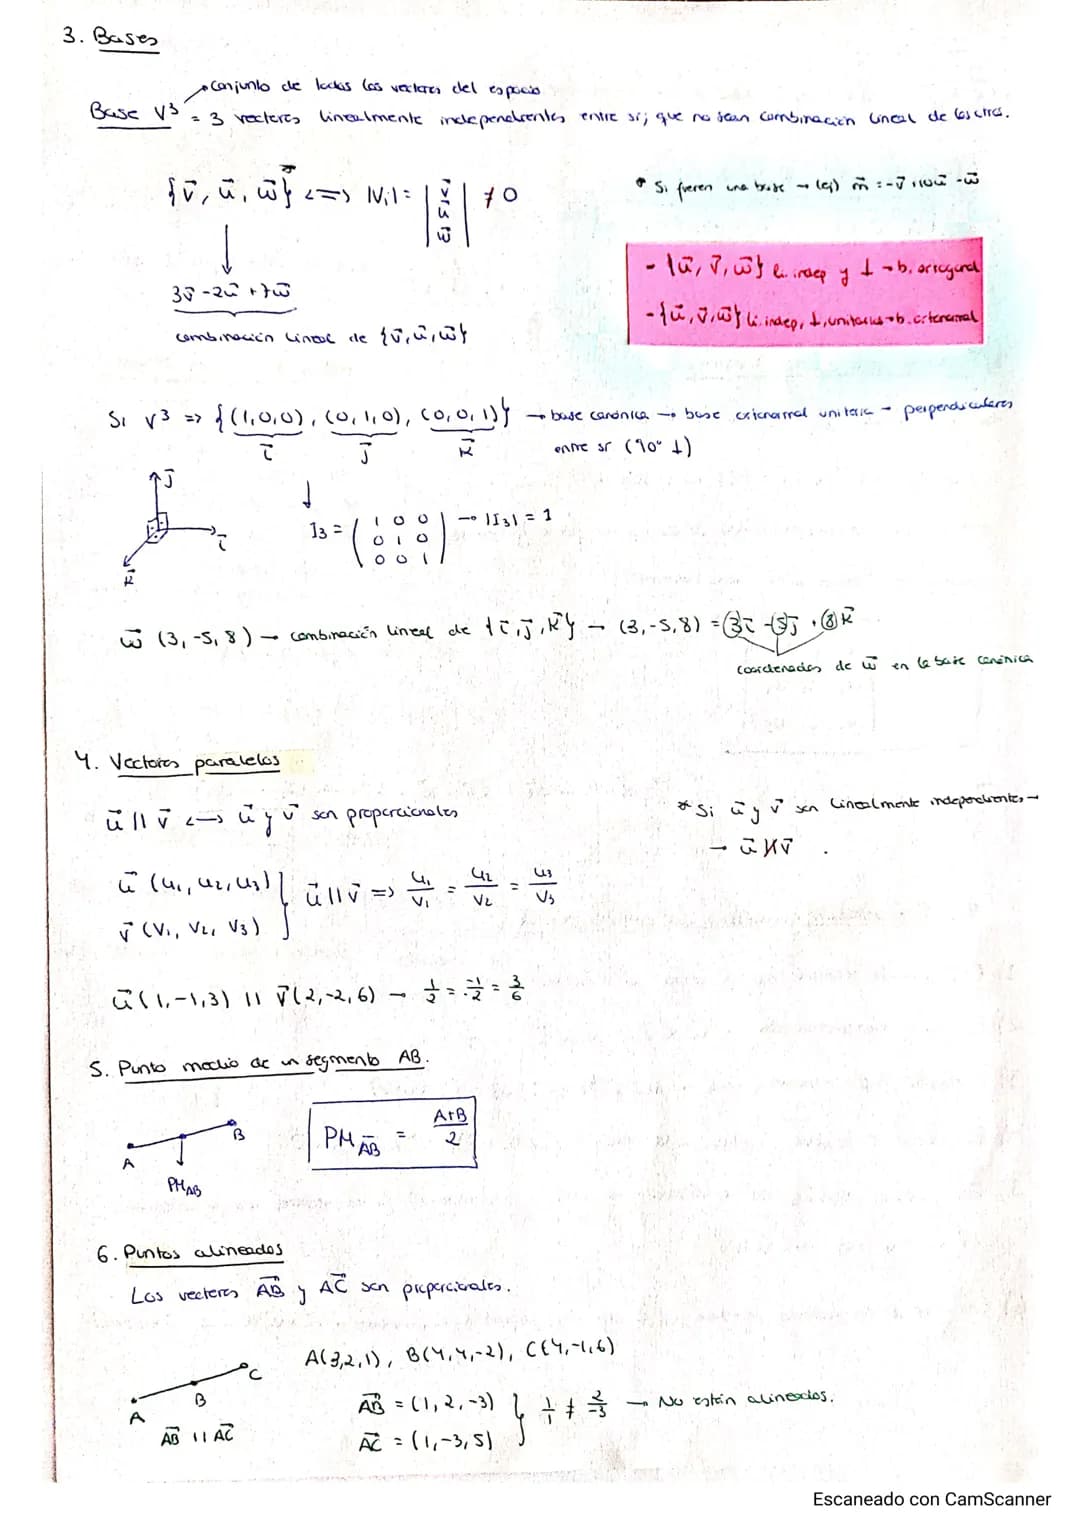 3. Bases
conjunto de todos los vectores del espacio
Base V³ = 3 vectores linealmente independientes entre sí; que no sean combinación lineal de los otros.
{v⃗, u⃗, w⃗}* <=> |Vi| = |v⃗ u⃗ w⃗| ≠ 0
* Si fueren una base → (ej) m⃗ = -v⃗ + 10u⃗ - w⃗
3v⃗ - 2u⃗ + 7w⃗
combinación lineal de {v⃗, u⃗, w⃗}
- {u⃗, v⃗, w⃗} li. indep y ⊥ → b. ortogonal
- {u⃗, v⃗, w⃗} li. indep, ⊥, unitarios → b. ortonormal
Si V³ => {(1,0,0), (0,1,0), (0,0,1)} → base canónica → base ortonormal unitaria - perpendiculares
i⃗ j⃗ k⃗
entre sí (90° ⊥)
j⃗
i⃗
k⃗
I3 = ( 1 0 0
0 1 0
0 0 1 ) → |I3| = 1
w⃗ (3, -5, 8) → combinación lineal de {i⃗, j⃗, k⃗} → (3,-5,8) = 3i⃗ -5j⃗ + 8k⃗
coordenadas de w⃗ en la base canónica
4. Vectores paralelos
u⃗ || v⃗ <-> u⃗ y v⃗ son proporcionales
* Si u⃗ y v⃗ son linealmente independientes →
→ u⃗ ∦ v⃗ .
u⃗ (u1, u2, u3)
v⃗ (v1, v2, v3) } u⃗ || v⃗ => u1/v1 = u2/v2 = u3/v3
u⃗(1,-1,3) || v⃗(2,-2,6) → 1/2 = -1/-2 = 3/6
5. Punto medio de un segmento AB.
A
B
PM AB
PM AB = A+B/2
6. Puntos alineados
Los vectores AB⃗ y AC⃗ son proporcionales.
A
B
C
AB⃗ || AC⃗
A(3,2,1), B(4,4,-2), C(4,-1,6)
AB⃗ = (1, 2, -3)
AC⃗ = (1, -3, 5) } 1/1 ≠ 2/-3 → No están alineados.
Escaneado con CamScanner